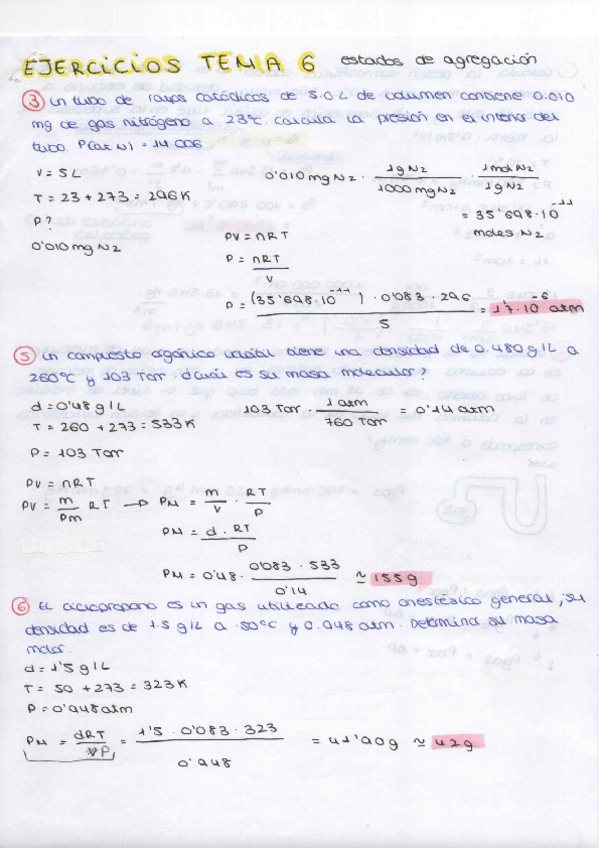 EJERCICIOS TEMA 6 estados de agregación
③ Un tubo de rayos catódicos de 5.0 L de volumen contiene 0.010
mg de gas nitrógeno a 23ºC calcula la presión en el interior del
tubo. P(at N) = 14.006
V = 5 L
0'010 mg N2 · 1 g N2 / 1000 mg N2 · 1 mol N2 / 1 g N2
T = 23 + 273 = 296 K
= 35'698·10⁻¹¹
moles N2
P?
0'010 mg N2
PV = nRT
P = nRT / V
P = (35'698·10⁻¹¹) · 0'083 · 296 / 5 = 1'7·10⁻⁶ atm
⑤ Un compuesto orgánico volátil tiene una densidad de 0.480 g/L a
260ºC y 103 Torr. ¿Cuál es su masa molecular?
d = 0'48 g/L
103 Torr · 1 atm / 760 Torr = 0'14 atm
T = 260 + 273 = 533 K
P = 103 Torr
PV = nRT
PV = m / Pm RT → PM = m / V · RT / P
PM = d · RT / P
PM = 0'48 · 0'083 · 533 / 0'14 ≃ 155 g
⑥ El ciclopropano es un gas utilizado como anestésico general, su
densidad es de 1.5 g/L a 50ºC y 0.948 atm. Determina su masa
molar.
d = 1'5 g/L
T = 50 + 273 = 323 K
P = 0'948 atm
PM = dRT / P = 1'5 · 0'083 · 323 / 0'948 = 41'90 g ≃ 42 g